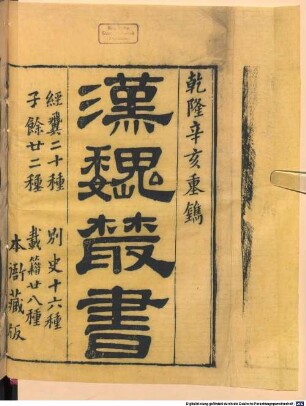 乾隆辛亥重鐫
漢魏叢書
經翼二十種 別史十六種
子餘廿二種 載籍廿八種
本衙藏版